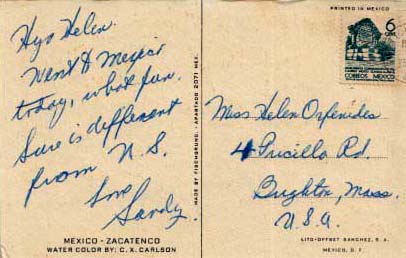 Hys Helen.
Went to Mexico
today, what fun.
Sure is different
from U.S.
Love
Sandy.
MEXICO - ZACATENCO
WATER COLOR BY: C. X. CARLSON
MADE BY FISCHGRUND, APARTADO 2071 MEX.
PRINTED IN MEXICO
6
CORREOS MEXICO
Miss Helen Orfenides
4 Priscilla Rd.
Brighton, Mass.
U.S.A.
LITO-OFFSET SANCHEZ, S. A.
MEXICO, D. F.